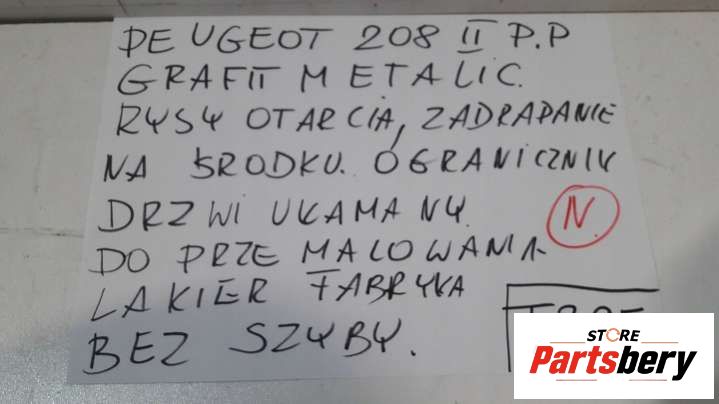 PEUGEOT 208 II P.P
GRAFIT METALIC.
RYSY OTARCIA, ZADRAPANIE
NA ŚRODKU. OGRANICZNIK
DRZWI UŁAMANY. N.
DO PRZEMALOWANIA
LAKIER FABRYKA
BEZ SZYBY.
STORE
Partsbery